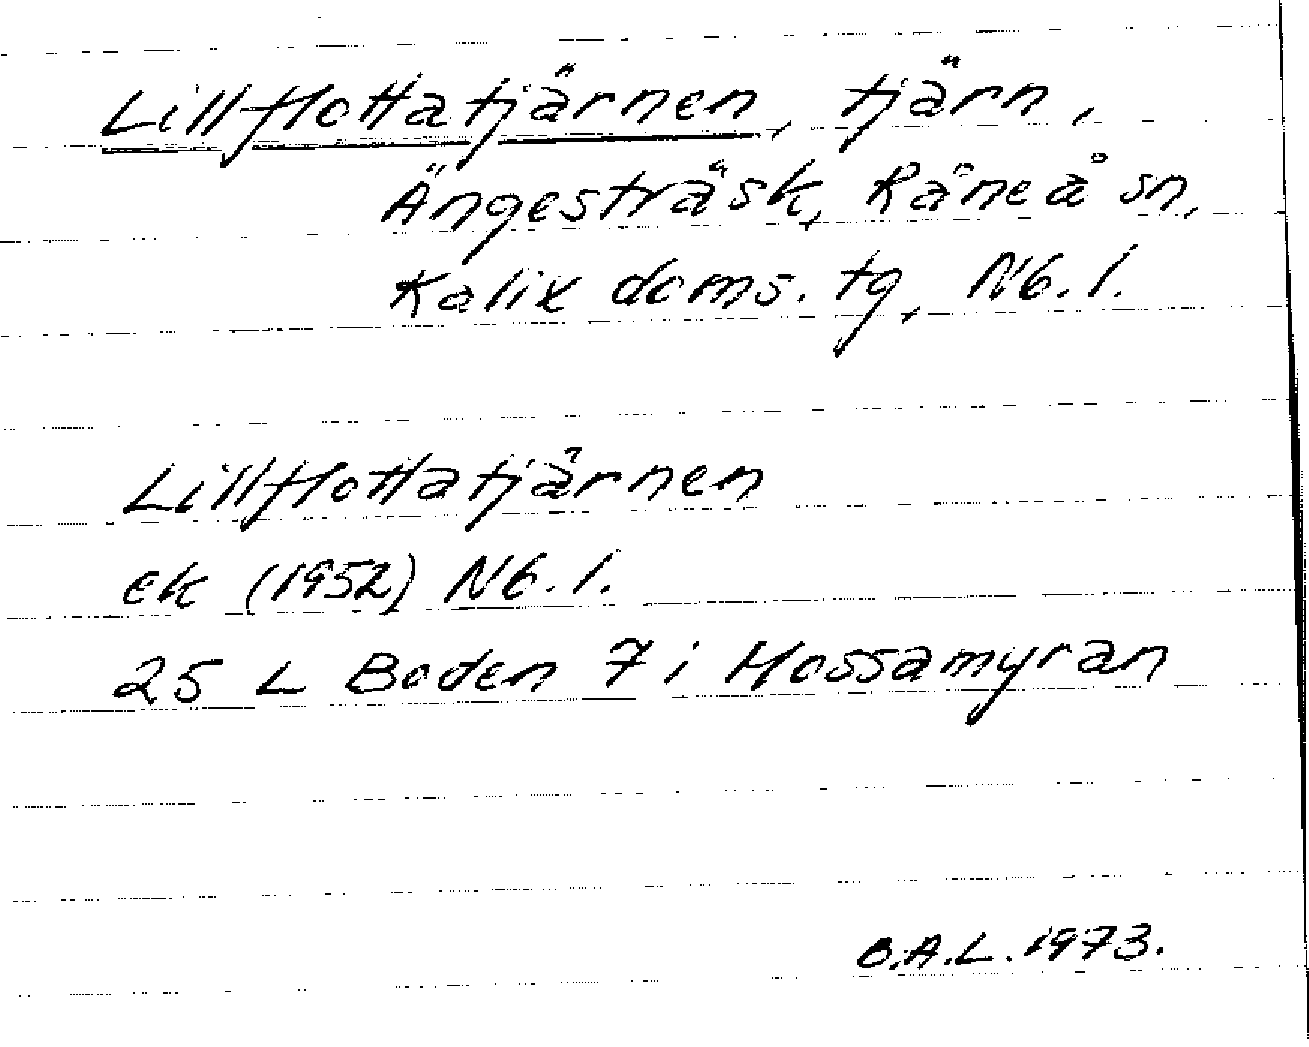 Lillflottatjärnen, tjärn,
Ängesträsk, Råneå sn,
Kalix doms. tg, Nb. l.
Lillflottatjärnen
ek (1952) Nb. l.
25 L Boden 7 i Mossamyran
B.A.L. 1973.